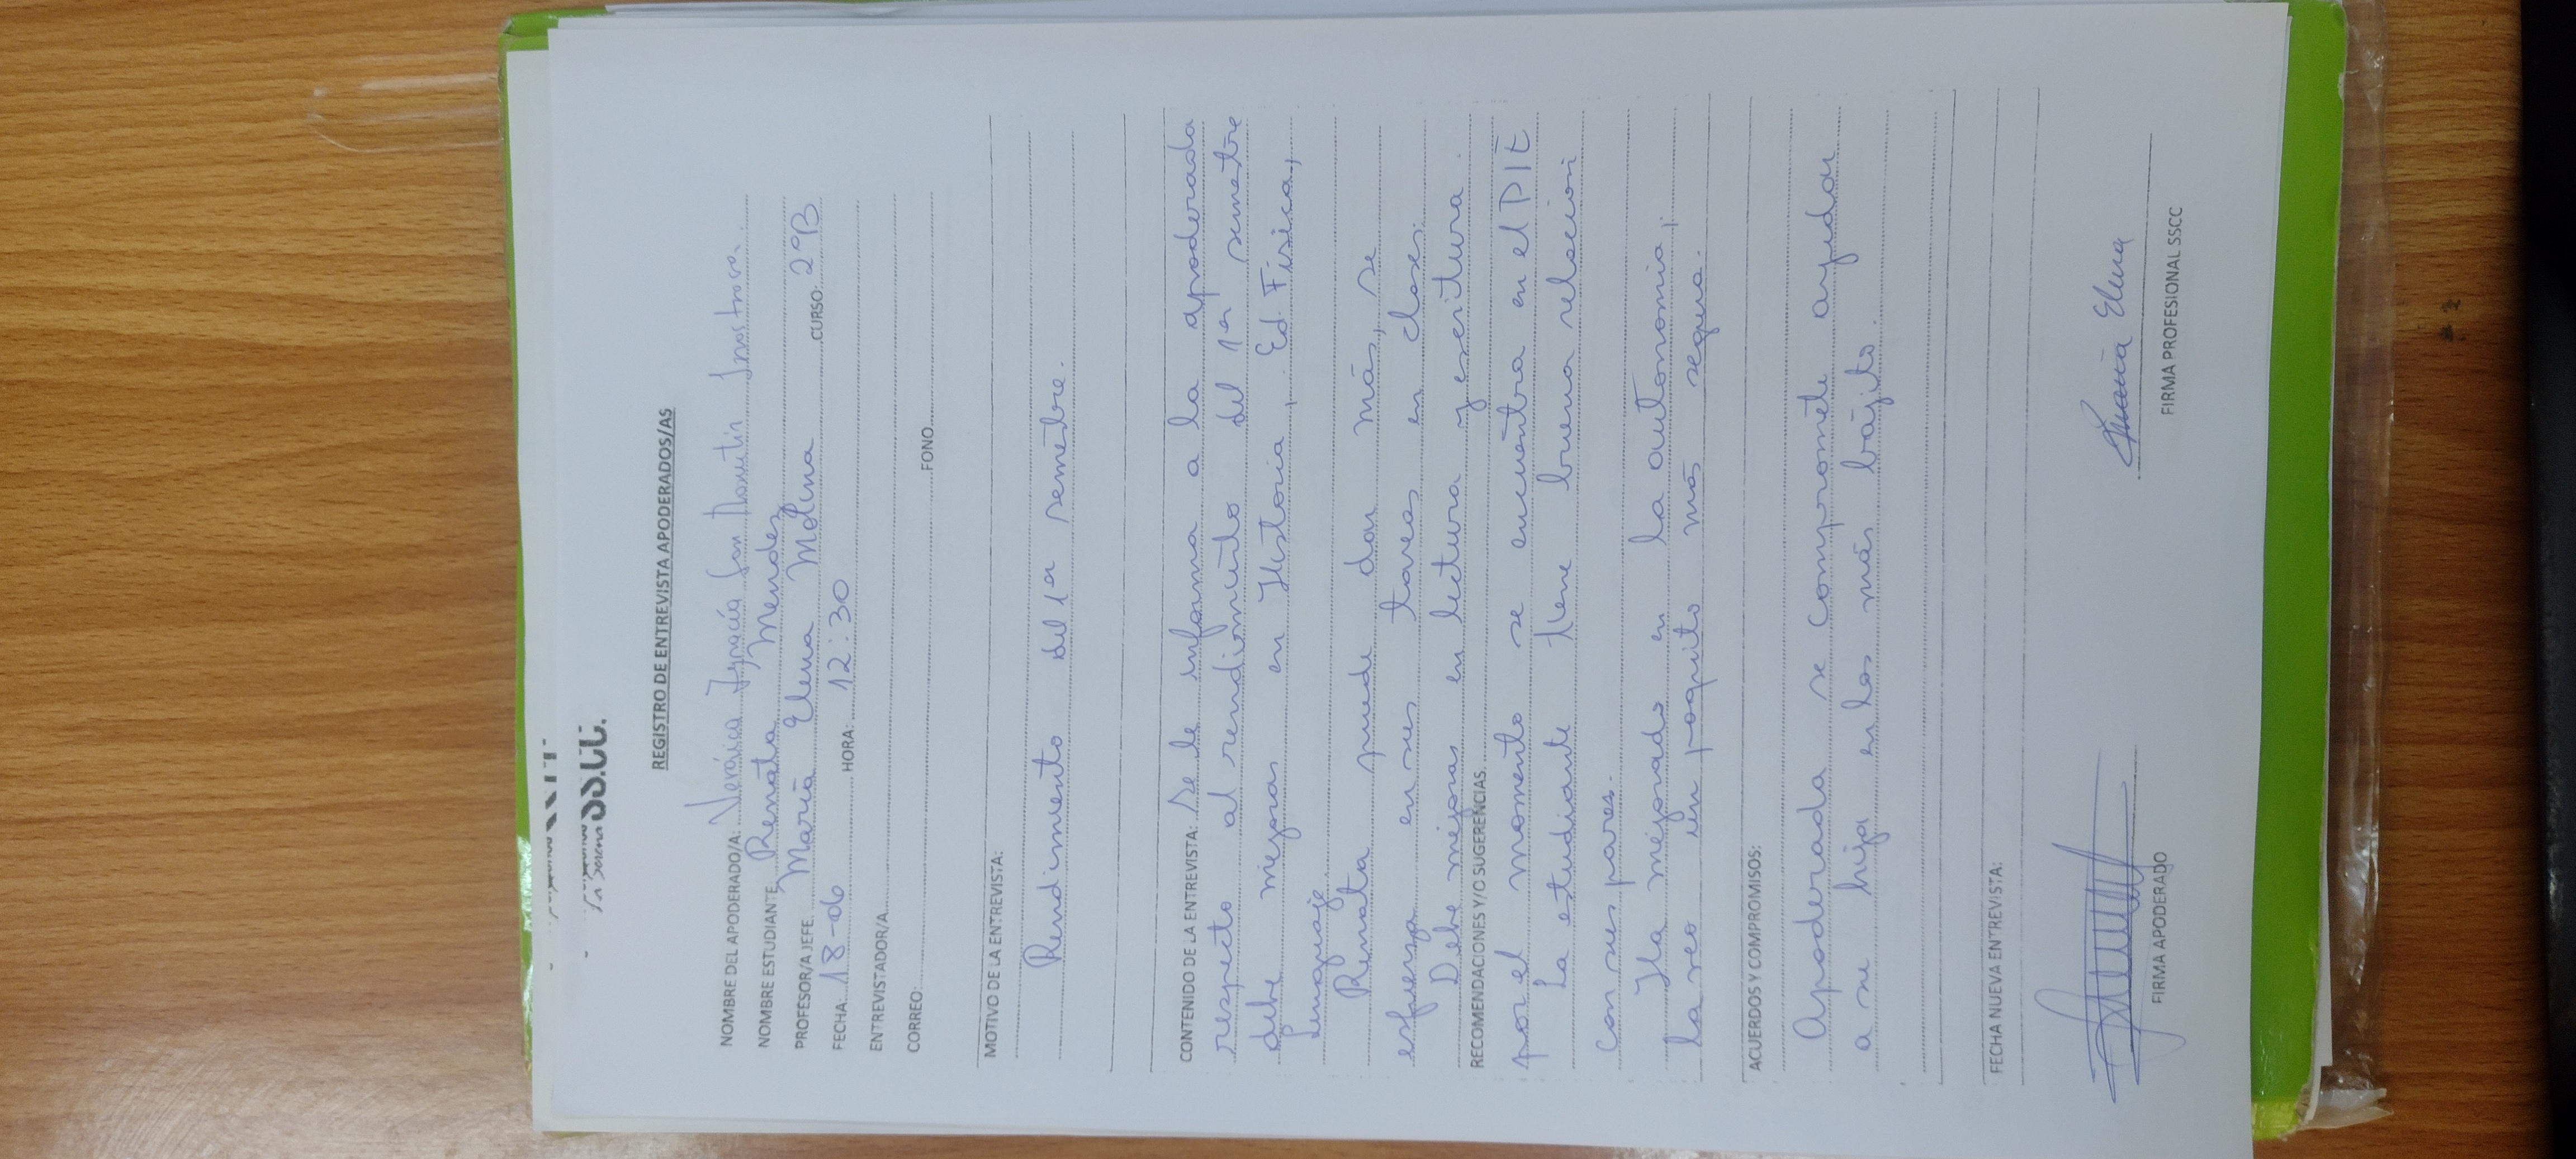 SS.CC.
La Serena
REGISTRO DE ENTREVISTA APODERADOS/AS
NOMBRE DEL APODERADO/A: Verónica Ignacia San Martín Inostroza.
NOMBRE ESTUDIANTE Renata Mendez
PROFESOR/A JEFE María Elena Molina CURSO: 2°B
FECHA: 18-06 HORA: 12:30
ENTREVISTADOR/A
CORREO: FONO
MOTIVO DE LA ENTREVISTA:
Rendimiento del 1er semestre.
CONTENIDO DE LA ENTREVISTA: Se le informa a la apoderada
respecto al rendimiento del 1er semestre
debe mejorar en Historia, Ed. Física,
Lenguaje
Renata puede dar más, se
esfuerza en sus tareas en clases.
Debe mejorar en lectura y escritura.
RECOMENDACIONES Y/O SUGERENCIAS
por el momento se encuentra en el PIE
La estudiante tiene buena relación
con sus pares.
Ha mejorado en la autonomía,
la veo un poquito más segura.
ACUERDOS Y COMPROMISOS:
Apoderada se compromete ayudar
a su hija en los más bajito.
FECHA NUEVA ENTREVISTA:
María Elena
FIRMA APODERADO FIRMA PROFESIONAL SSCC